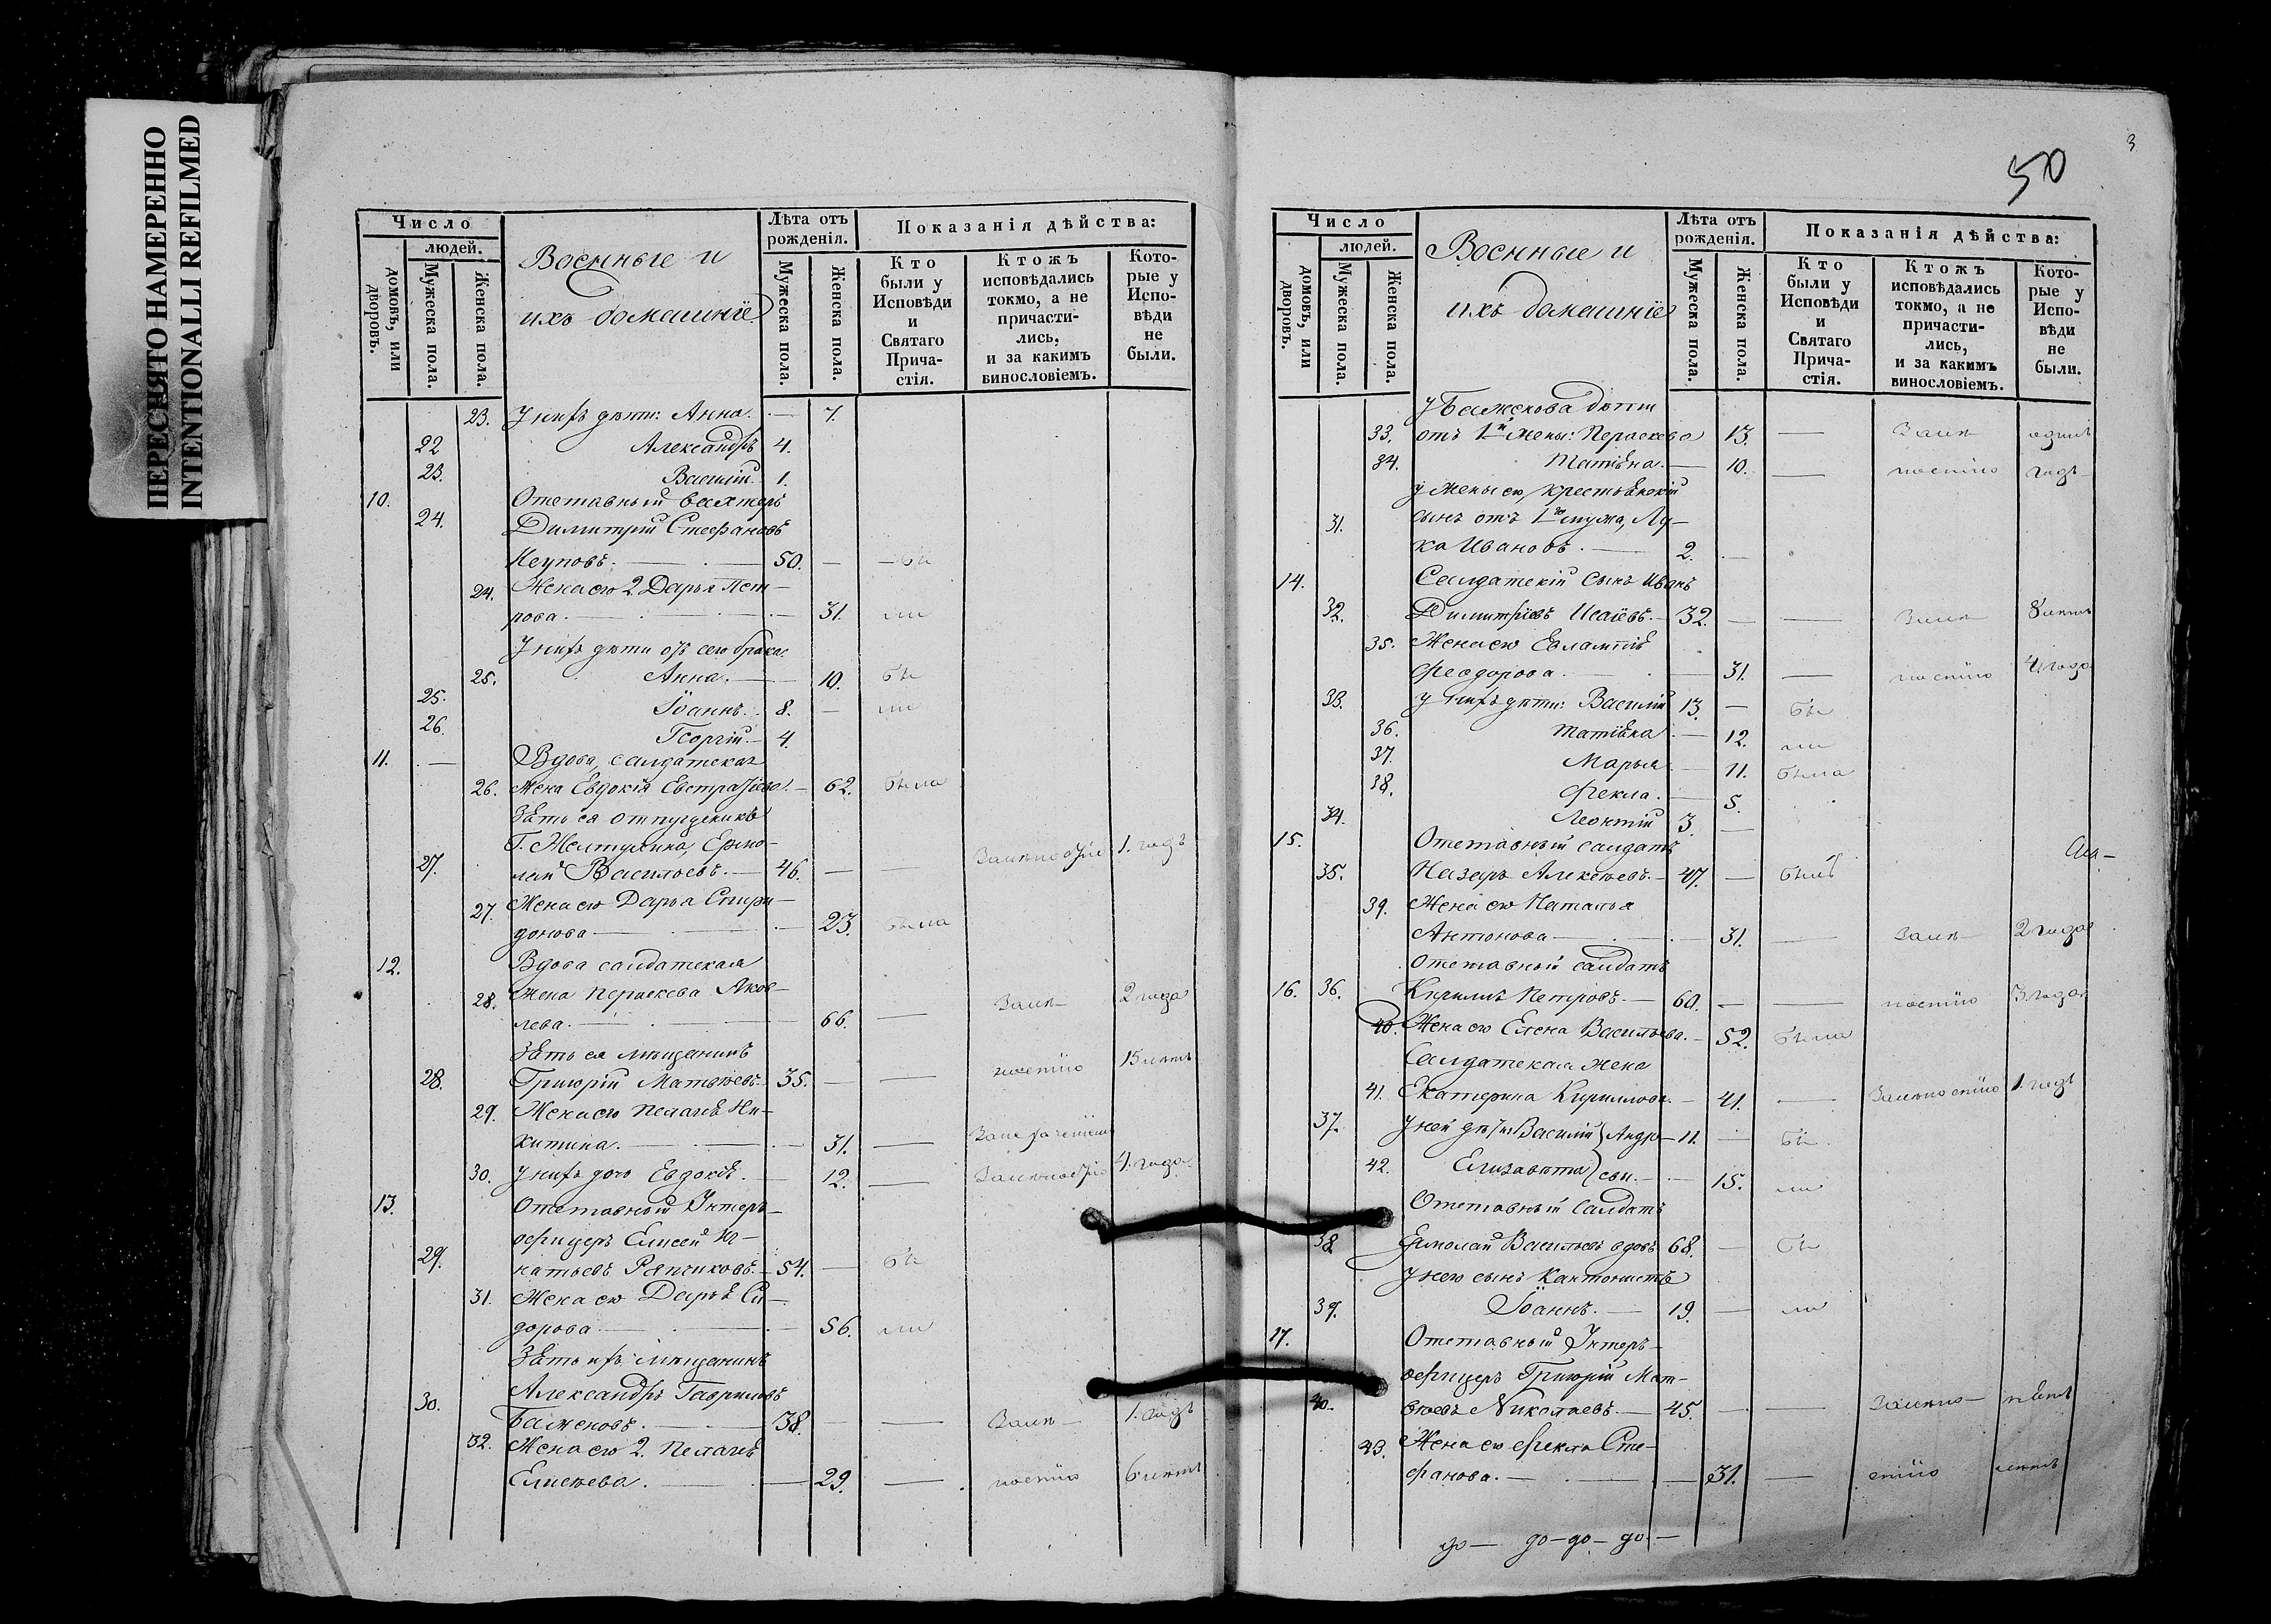 ПЕРЕСНЯТО НАМЕРЕННО
INTENTIONALLI REFILMED
Число
людей.
домовъ, или дворовъ.
Мужеска пола.
Женска пола.
Военные и
ихъ домашніе
Лѣта отъ рожденія.
Мужеска пола.
Женска пола.
Показанія дѣйства:
Кто были у Исповѣди и Святаго Прича-стія.
Ктожъ исповѣдались токмо, а не причасти-лись, и за какимъ винословіемъ.
Кото-рые у Испо-вѣди не были.
23. У нихъ дѣти: Анна. — 7.
22 Александръ 4.
23. Василій. 1.
10. Отставный вахтеръ
24. Димитрій Стефановъ
50. — бы
24. Жена его 2. Дарья Пет-
рова. — 31. ли
У нихъ дѣти отъ сего брака
25. Анна. — 10. бы
25. Іоаннъ. 8. — ли
26. Георгій. — 4.
11. — Вдова, салдатская
26. жена Евдокія Евстратіева. — 62. была
Зять ея отпущеникъ
Г. Желтухина, Ермо-
27. лай Васильевъ. — 46. — — Залѣностію 1. годъ
27. Жена его Дарья Спири-
донова — 23. была
12. Вдова салдатская
28. жена Параскева Яков-
лева. — 66. — Залѣ- 2 года
Зять ея мѣщанинъ
28. Григорій Матвѣевъ. 35. — — ностію 15 лѣтъ
29. Жена его Пелагія Ни-
китина. — 31. —
30. У нихъ дочь Евдокія. — 12. — Залѣностію 4. года
13. Отставный Унтеръ-
офицеръ Елисей Иг-
29. натьевъ Рапчиковъ. — 54. — бы
31. Жена его Дарья Си-
дорова — 56. ли
Зять ихъ мѣщанинъ
Александръ Гавриловъ
30. Баженовъ. — 38. — — Залѣ- 1. годъ
32. Жена его 2. Пелагія
Елисѣева. — 29. — ностію 6 лѣтъ
3
50
Число
людей.
домовъ, или дворовъ.
Мужеска пола.
Женска пола.
Военные и
ихъ домашніе
Лѣта отъ рожденія.
Мужеска пола.
Женска пола.
Показанія дѣйства:
Кто были у Исповѣди и Святаго Прича-стія.
Ктожъ исповѣдались токмо, а не причасти-лись, и за какимъ винословіемъ.
Кото-рые у Испо-вѣди не были.
у Баженова дѣти
33. отъ 1й жены: Параскева 13. — Залѣ- одинъ
34. Татіана. — 10. — ностію годъ
у жены его, крестьянскій
31. сынъ отъ 1го мужа, Лу-
ка Ивановъ. — 2. —
14. Салдатскій сынъ Иванъ
32. Димитріевъ Исаевъ. — 32. — — Залѣ- 8 лѣтъ
35. Жена его Евлампія
Феодорова. — 31. — ностію 4. года
33. У нихъ дѣти: Василій 13. — бы
36. Татіана — 12. ли
37. Марья — 11. была
38. Фекла. — 5.
34. Леонтій 3. —
15. Отставный салдатъ
35. Назаръ Алексѣевъ. — 47. — былъ
39. Жена его Наталья
Антонова — 31. — Залѣ- 2 года
Отставный салдатъ
16. 36. Кирилъ Петровъ. — 60. — — ностію 3. года
40. Жена его Елена Васильева. — 52. была
Салдатская жена
41. Екатерина Кириллова. — 41. — Залѣностію 1. годъ
37. У ней дѣти Василій } Андре- 11. — бы
42. Елизавета } евы. — 15. ли
Отставный салдатъ
38 Ермолай Васильевъ вдовъ 68. — бы
У него сынъ кантонистъ
39. Іоаннъ. — 19. — ли
17. Отставный Унтеръ-
офицеръ Григорій Мат-
40. вѣевъ Николаевъ. — 45. — — Залѣно-
43. Жена его Фекла Сте-
фанова. — 31. — стію лѣтъ
до — до — до — до —